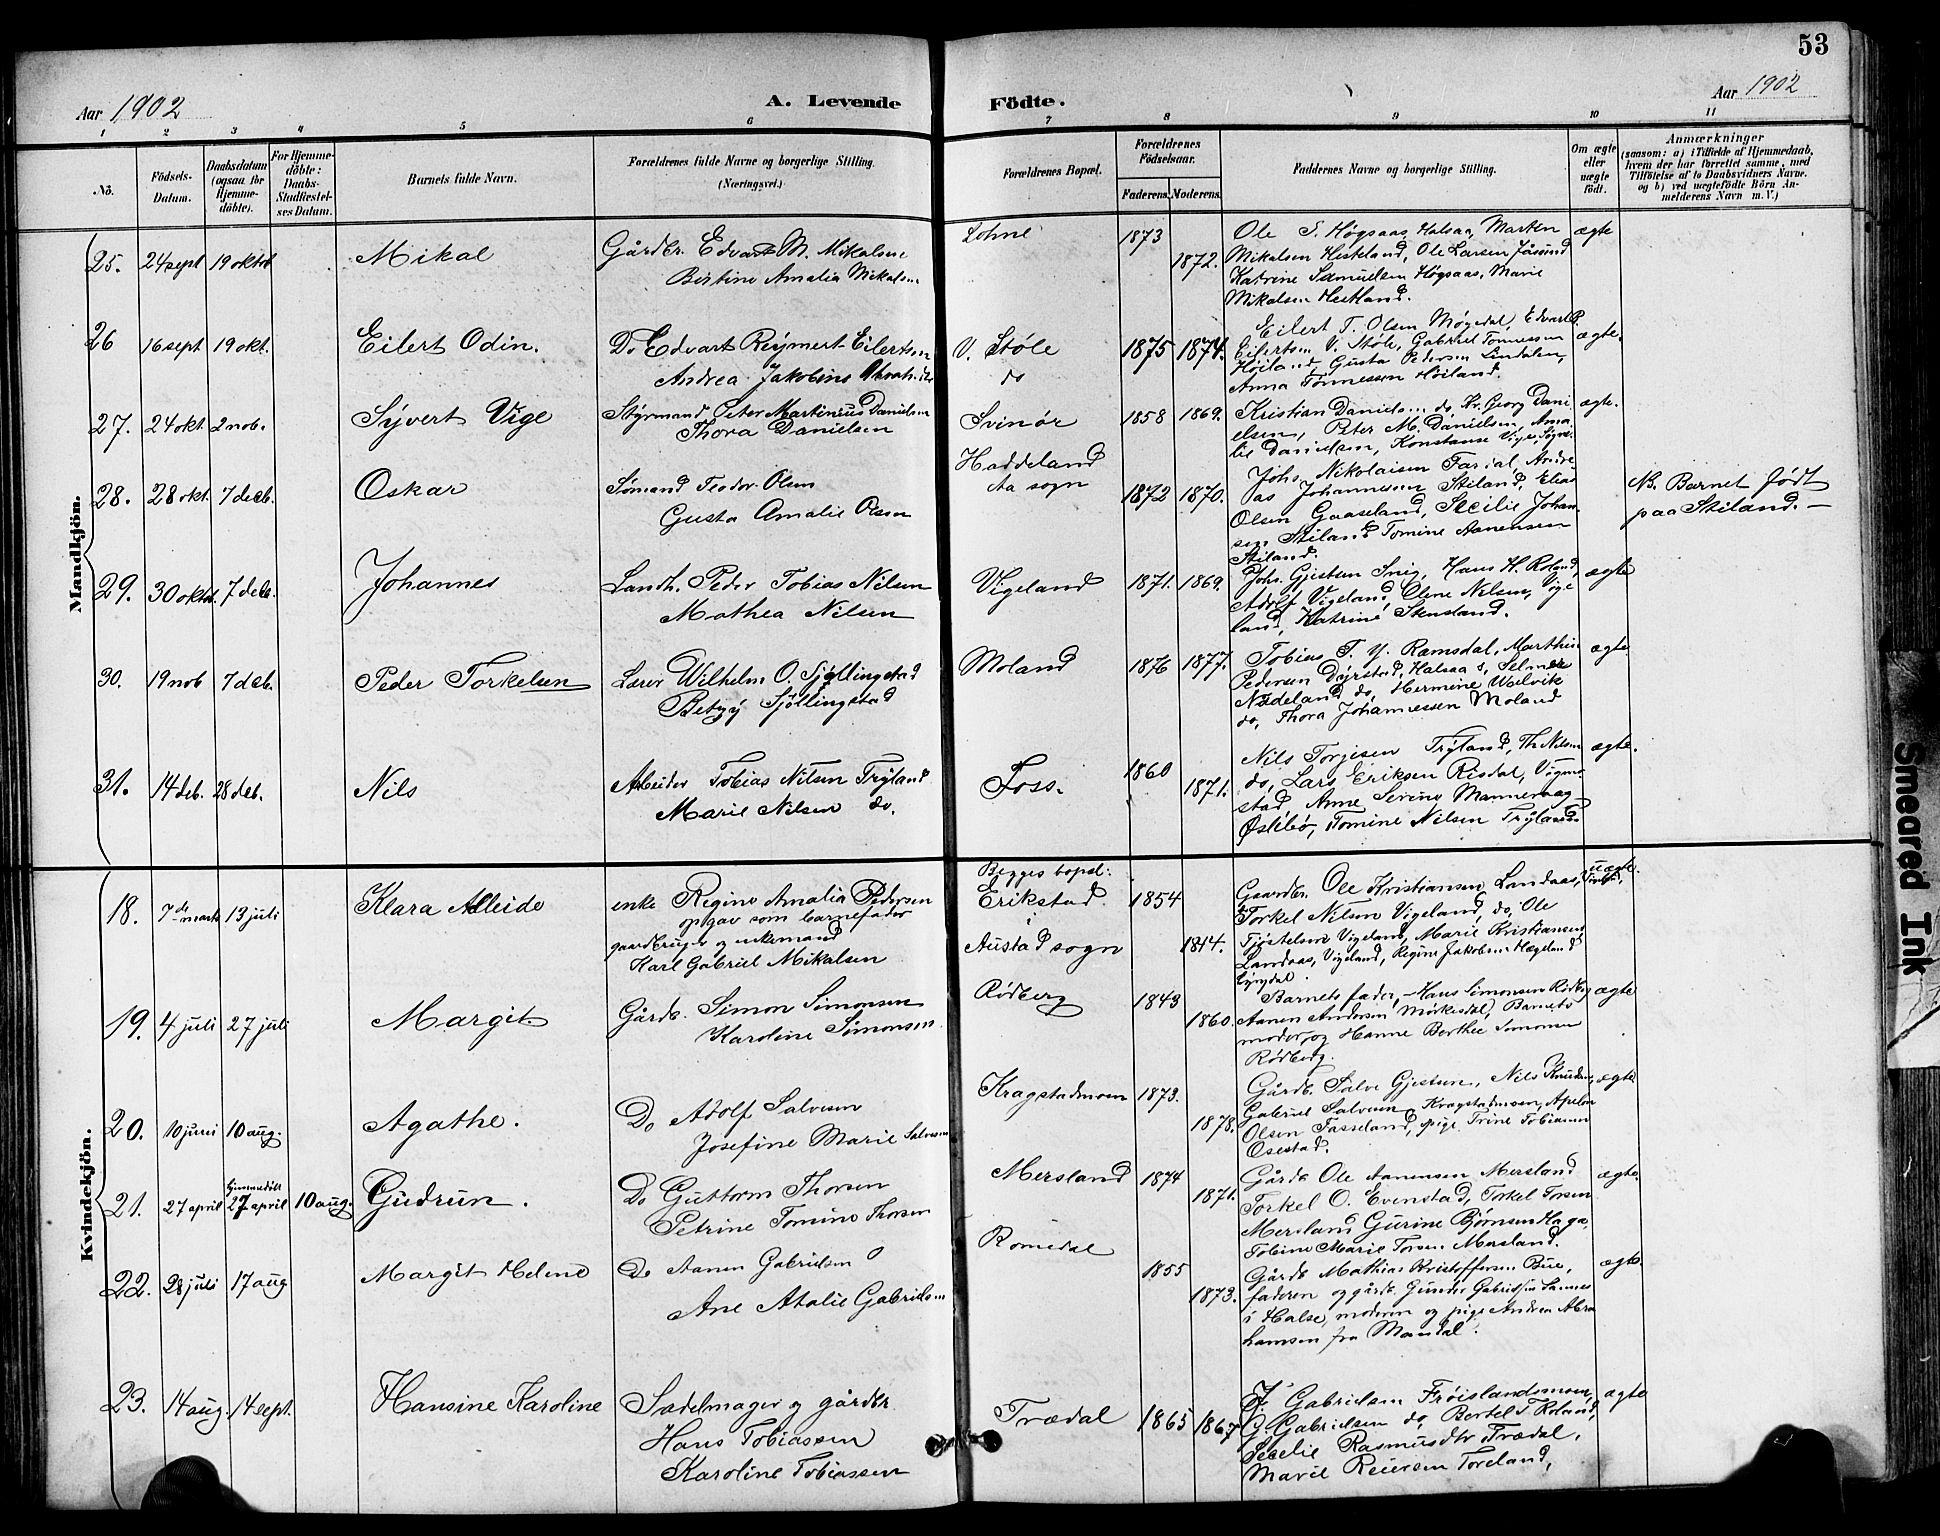 53
Aar 1902
A. Levende Födte.
Aar 1902
1 2 3 4 5 6 7 8 9 10 11
No.
Födsels-Datum.
Daabsdatum (ogsaa for Hjemme-döbte).
For Hjemme-döbte: Daabs-Stadfæstel-ses Datum.
Barnets fulde Navn.
Forældrenes fulde Navne og borgerlige Stilling. (Næringsvei.)
Forældrenes Bopæl.
Forældrenes Födselsaar.
Faderens. Moderens.
Faddernes Navne og borgerlige Stilling.
Om ægte eller uægte födt.
Anmærkninger
(saasom: a) i Tilfælde af Hjemmedaab, hvem der har forrettet samme, med Tilföielse af to Daabsvidners Navne, og b) ved uægtefödte Börn An-melderens Navn m. V.)
Mandkjön.
25. 24 sept 19 oktob Mikal
Gårdbr. Edvart M. Mikalsen
Bertine Amalia Mikals...
Lohne 1873 1872.
Ole S. Högsaas, Halsaa, Marten
Mikalsen Hesteland, Ole Larsen Jåsund
Katrine Samuelsen Høgsaas, Marie
Mikalsen Hestland.
ægte
26 16 sept 19 okt. Eilert Odin.
Do Edvart Reymert Eilertsen
Andrea Jakobine
V. Støle
do
1875 1874.
Eilert T. Olsen Møgedal, Edvart R.
Eilertsen V. Støle, Gabriel Tønnessen
Høiland, Gusta Pedersen Lindalen,
Anna Tønnessen Høiland.
ægte.
27. 24 okt. 2 nob. Syvert Vige
Styrmand Peter Martinius Danielsen
Thora Danielsen
Svinør 1858 1869.
Kristian Daniels... do, Kr. Georg Dani-
elsen, Peter M. Danielsen, Ama-
lie Danielsen, Konstanse Vige,
ægte.
28. 28 okt. 7 deeb. Oskar
Sømand Teodor Olsen
Gusta Amalie Olsen
Haddeland
Aa sogn
1872 1870.
Johs Nikolaisen Fardal, Andre-
as Johannesen Stiland, Elias
Olsen Gaaseland, Secilie Johan-
sen Stiland Tomine Aanensen
Stiland.
NB. Barnet født
paa Stiland. —
29. 30 oktb. 7 deeb. Johannes
Landh. Peder Tobias Nilsen
Mathea Nilsen
Vigeland 1871. 1869.
Johs. Gjertsen Snig, Hans H. Roland,
Adolf Vigeland, Elene Nilsen, Vige
land, Katrine Stensland.
ægte
30. 19 nob 7 deb. Peder Torkelsen
Lærer Wilhelm O. Sjøllingstad
Betzy Sjøllingstad
Moland 1876 1877.
Tobias T. Y. Ramsdal, Marthin
Pedersen Dyrstad, Halsaa s, Selmer
Nædeland do, Hermine Walvik
do, Thora Johannessen Moland
ægte
31. 14 deb. 28 deb. Nils
Arbeider Tobias Nilsen Tryland
Marie Nilsen do.
Foss. 1860 1871.
Nils Torjesen Tryland, Th. Nilsen
do, Lars Eriksen Risdal, Vigme-
stad, Anne Serine Mannervag
Østebø, Tomine Nilsen Tryland
ægte.
Kvindekjön.
18. 7 de marts 13 juli Klara Alleide
enke Regine Amalia Pedersen
opgav som barnefader
gaardbruger og enkemand
Karl Gabriel Mikalsen
Begges bopæl:
Erikstad
i
Austad sogn
1854 1844.
Gaardbr. Ole Kristiansen Landaas,
Torkel Nilsen Vigeland, do, Ole
Tjøstelsen Vigeland, Marie Kristiansen
Landaas, Vigeland, Regine Jakobsen Hægeland
Lyngdal.
uægte.
19. 4 juli 27 juli Margit
Gårdb. Simon Simonsen
Karoline Simonsen
Rødberg 1843 1860
Barnets fader, Hans Simonsen Rødberg
Aanen Andersen Mørkesdal, Barnets
moder, og Hanne Berthe Simonsen
Rødberg.
ægte
20. 10 juni 10 aug. Agathe.
Do Adolf Salvesen
Josefine Marie Salvesen
Kragstadmoen 1873. 1878.
Gårdb. Salve Gjertsen, Nils Knudsen
Gabriel Salvesen Kragstadmoen,
Olsen Fasseland, pige Trine Tobiasen
Osestad.
ægte
21. 27 april hjemmedöbt 27 april 10 aug. Gudrun.
Do Guttorm Thorsen
Petrine Tomine Thorsen
Mersland 1874 1871.
Gårdb Ole Aanensen Mersland
Torkel O. Evenstad, Torkel Torsen
Mersland Gurine Bjørnsen Haga,
Tobine Marie Torsen Mersland.
ægte
22. 28 juli 17 aug Margit Helene
Do Aanen Gabrielsen
Ane Atalie Gabriels...
Romedal 1855 1873.
Gårdb Mathias Kristoffersen Bue,
faderen og gårdb. Gunder Gabrielsen Sannes
i Halse, moderen og pige Andrea Abra
hamsen fra Mandal.
ægte.
23. 14 aug. 14 sept. Hansine Karoline
Sadelmager og gårdbr.
Hans Tobiassen
Karoline Tobiassen
Trædal 1865 1867
J. Gabrielsen Frøislandsmoen,
G. Gabrielsen do, Bertel T. Roland,
Secelie Rasmusdtr Trædal,
Marie Reiersen Foreland,
ægte
Smeared Ink